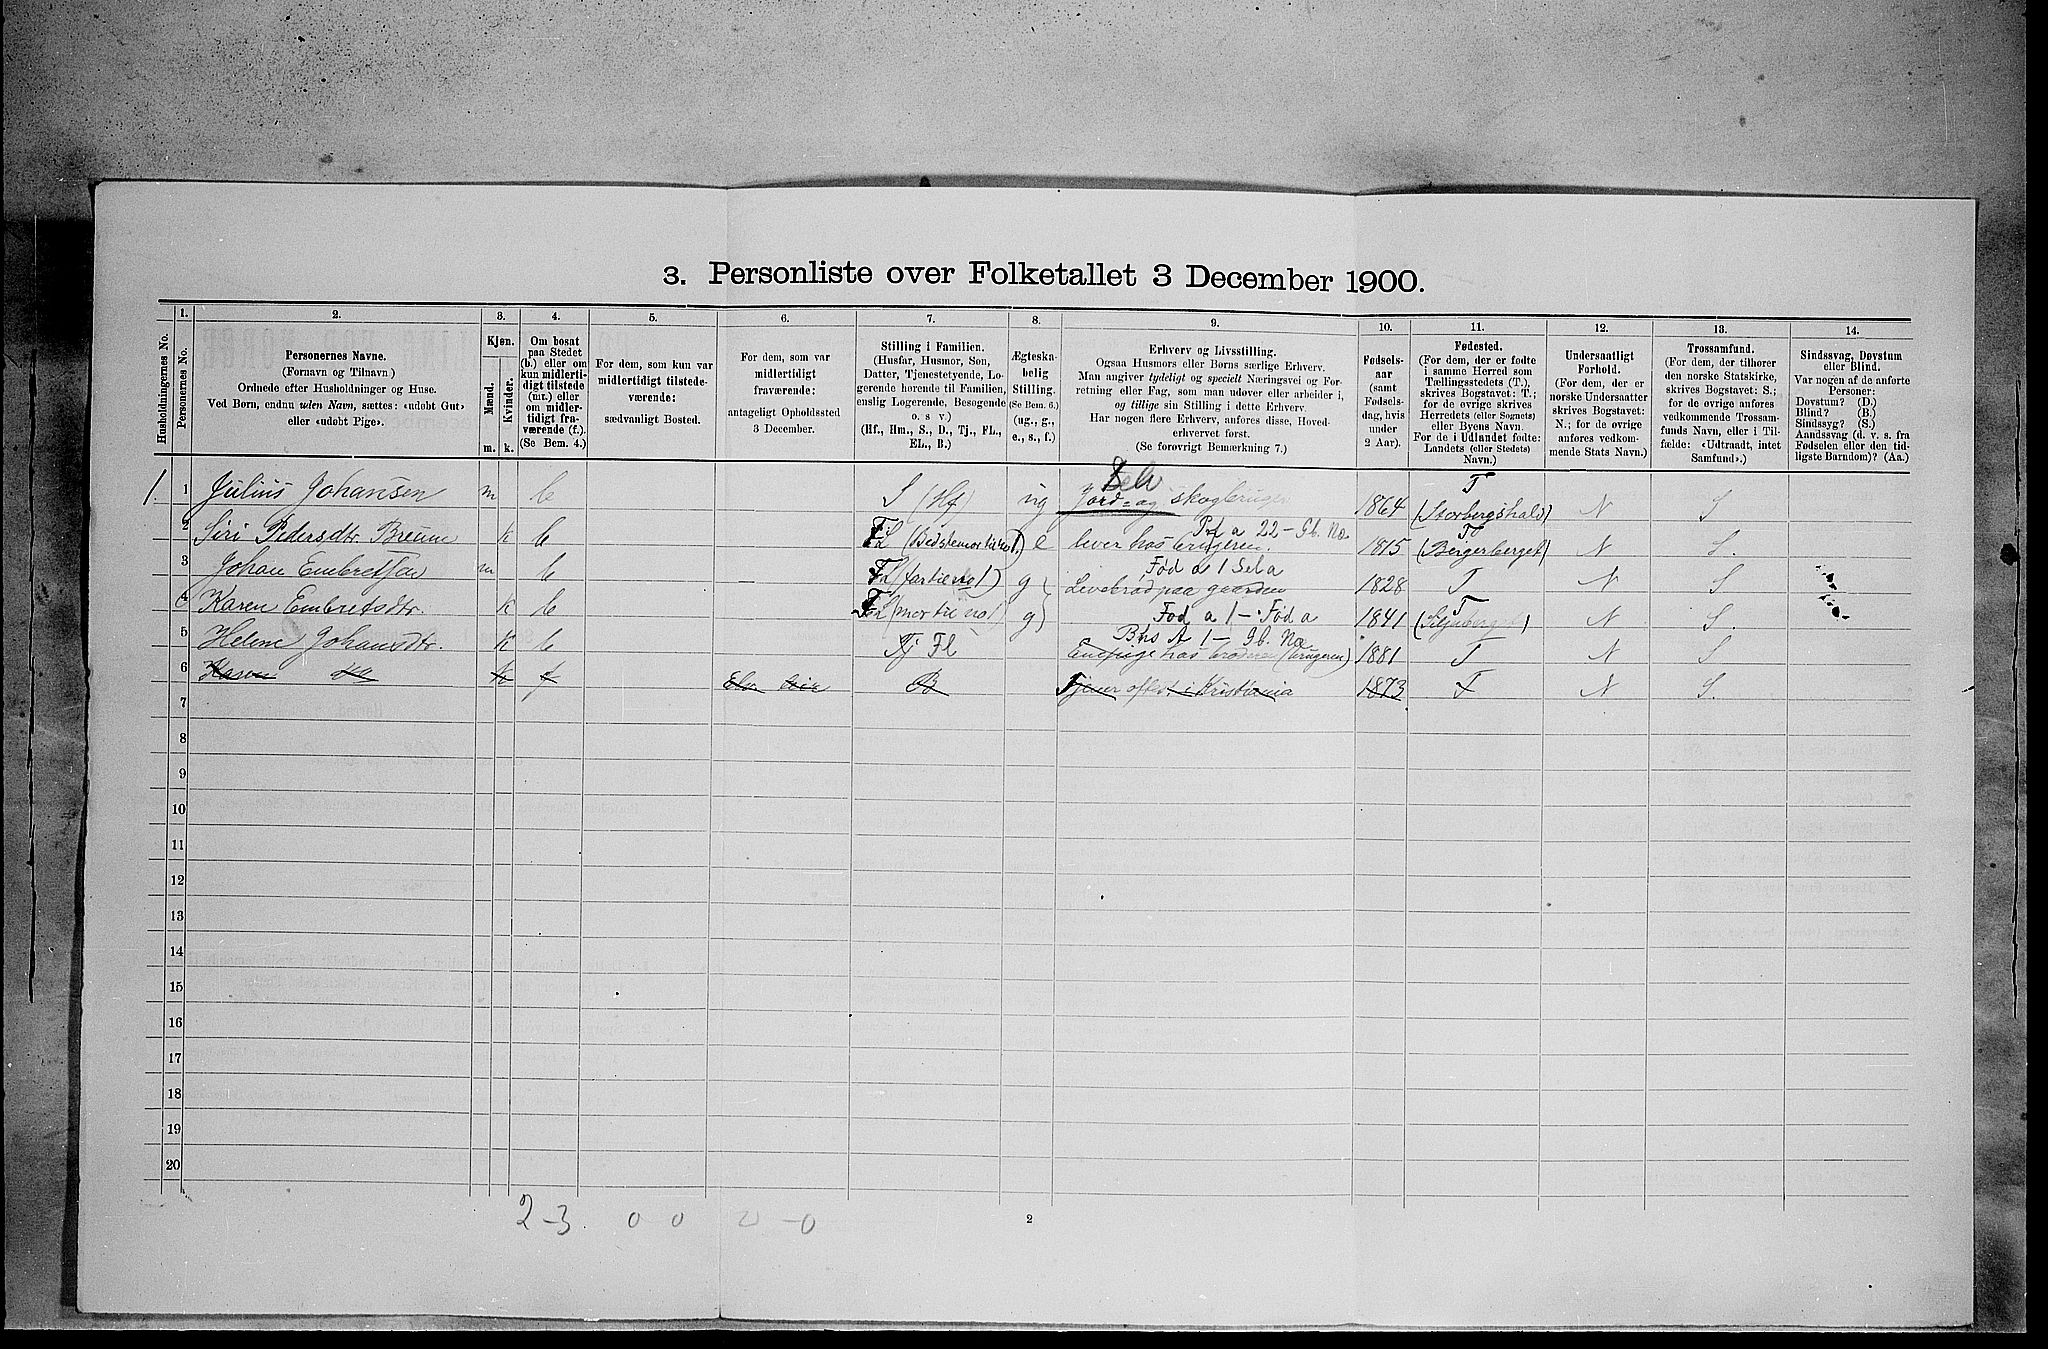 3. Personliste over Folketallet 3 December 1900.
Husholdningernes No.
1.
Personernes No.
2.
Personernes Navne.
(Fornavn og Tilnavn.)
Ordnede efter Husholdninger og Huse.
Ved Børn, endnu uden Navn, sættes: «udøbt Gut»
eller «udøbt Pige».
3.
Kjøn.
Mænd.
Kvinder.
m. k.
4.
Om bosat
paa Stedet
(b.) eller om
kun midlerti-
digt tilstede
(mt.) eller
om midler-
tidigt fra-
værende (f.).
(Se Bem. 4.)
5.
For dem, som kun var
midlertidigt tilstede-
værende:
sædvanligt Bosted.
6.
For dem, som var
midlertidigt
fraværende:
antageligt Opholdssted
3 December.
7.
Stilling i Familien.
(Husfar, Husmor, Søn,
Datter, Tjenestetyende, Lo-
gerende hørende til Familien,
enslig Logerende, Besøgende
o. s. v.)
(Hf., Hm., S., D., Tj., FL.,
EL., B.)
8.
Ægteska-
belig
Stilling.
(Se Bem. 6.)
(ug., g.,
e., s., f.)
9.
Erhverv og Livsstilling.
Ogsaa Husmors eller Børns særlige Erhverv.
Man angiver tydeligt og specielt Næringsvei og For-
retning eller Fag, som man udøver eller arbeider i,
og tillige sin Stilling i dette Erhverv.
Har nogen flere Erhverv, anføres disse, Hoved-
erhvervet først.
(Se forøvrigt Bemærkning 7.)
10.
Fødsels-
aar
(samt
Fødsels-
dag, hvis
under
2 Aar).
11.
Fødested.
(For dem, der er fødte
i samme Herred som
Tællingsstedets (T.),
skrives Bogstavet: T.;
for de øvrige skrives
Herredets (eller Sognets)
eller Byens Navn.
For de i Udlandet fødte:
Landets (eller Stedets)
Navn.)
12.
Undersaatligt
Forhold.
(For dem, der er
norske Undersaatter
skrives Bogstavet:
N.; for de øvrige
anføres vedkom-
mende Stats Navn.)
13.
Trossamfund.
(For dem, der tilhører
den norske Statskirke,
skrives Bogstavet: S.;
for de øvrige anføres
vedkommende Trossam-
funds Navn, eller i Til-
fælde: «Udtraadt, intet
Samfund».)
14.
Sindssvag, Døvstum
eller Blind.
Var nogen af de anførte
Personer:
Døvstum? (D.)
Blind? (B.)
Sindssyg? (S.)
Aandssvag (d. v. s. fra
Fødselen eller den tid-
ligste Barndom)? (Aa.)
Selv T
1. 1 Julius Johansen m b S (Hf) ug Jord= og skogbruger 1864 (Storbergshald) N S
Fd a 22 - Gb. Na T
2 Siri Pedersdtr Breum k b FL (Bedstemor til no 1.) e lever hos brugeren. 1815 (Beigerberget) N S.
Fød a 1 Sela
3 Johan Embretsen m b FL (far til no 1) g Levebrød paa gaarden 1828 T N S
Fød a 1 - Fød a T
4 Karen Embretsdtr. k b FL (mor til no 1) g 1841 N S.
Bhs A 1 - Gb. Na
5 Helene Johansdtr. k b Tj Fl hos broderen (brugeren) 1881 T N S
6 Karen k f B Tjener oftest i Kristiania 1873 T N S.
7
8
9
10
11
12
13
14
15
16
17
18
19
20
2-3 0 0 0-0
2